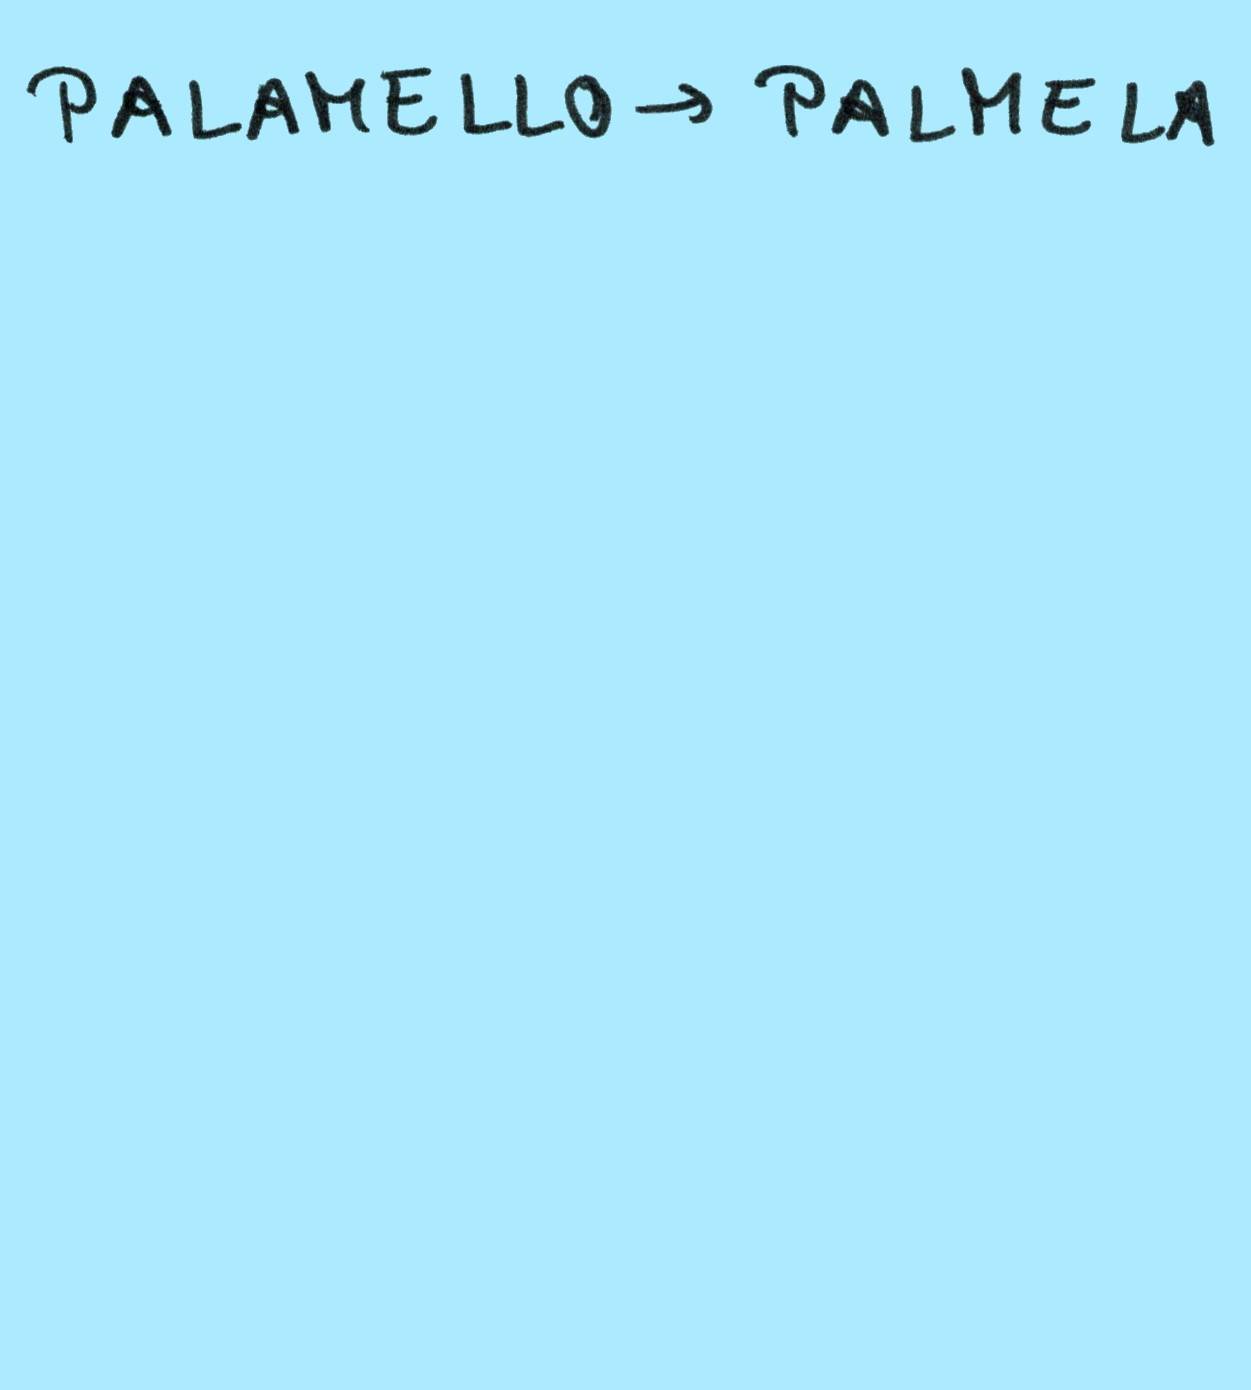 PALAMELLO → PALMELA